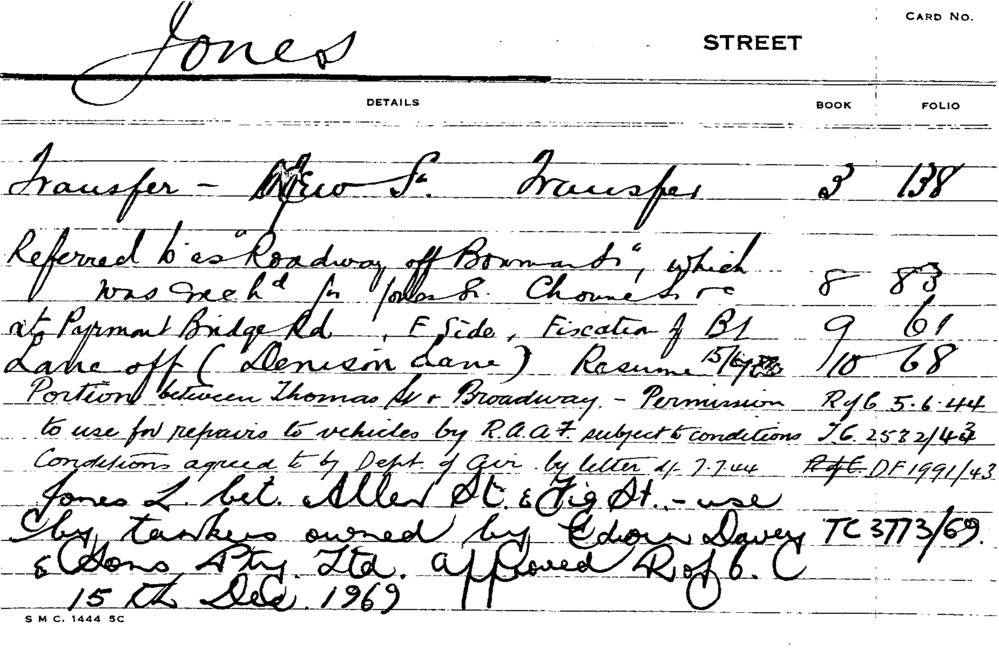 Jones STREET CARD No.
DETAILS BOOK FOLIO
Transfer - New St. Transfer 3 138
Referred to as "Roadway off Bowman St", which 8 83
was for Jones St.
at Pyrmont Bridge Rd, E Side, Fixation of Bdy 9 61
Lane off (Denison Lane) Resume 10 68
Portion between Thomas St & Broadway. - Permission R of C 5.6.44
to use for repairs to vehicles by R.A.A.F. subject to conditions T.C. 2532/43
Conditions agreed to by Dept. of Air by letter df. 7.7.44 R of C. DF 1991/43
Jones L. bet. Allen St. & Fig St. - use
by tankers owned by Edwin Davey TC 3773/69.
& Sons Pty. Ltd. approved R of C.
15 th Dec. 1969
S M C. 1444 5C